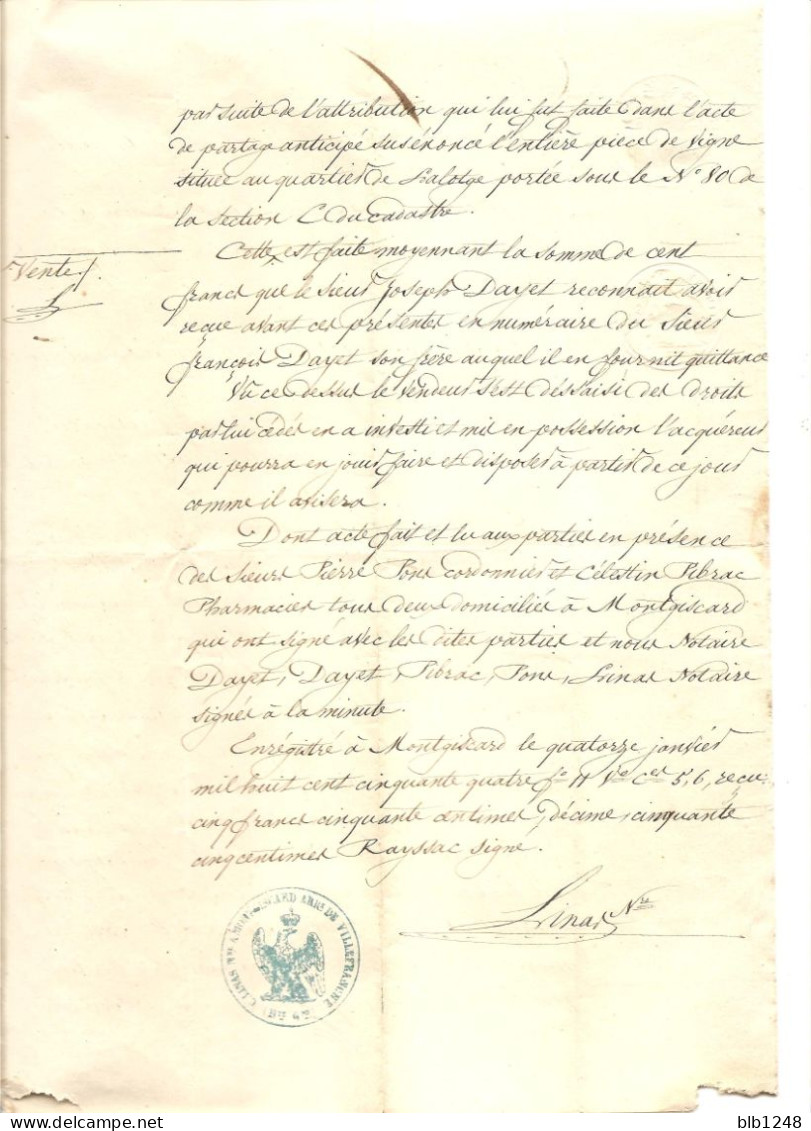 par suite de l'attribution qui lui fut faite dans l'acte
de partage anticipé susénoncé l'entière pièce de vigne
située au quartier de Lalotge portée sous le N° 80 de
la section C du cadastre.
Vente /.
Cette, est faite moyennant la somme de cent
francs que le Sieur Joseph Dayet reconnait avoir
reçue avant ces présentes en numéraire du Sieur
françois Dayet son frère auquel il en fournit quittance
Vu ce dessus le vendeur s'est déssaisi des droits
par lui cédés en a investi et mis en possession l'acquéreur
qui pourra en jouir faire et disposer à partir de ce jour
comme il avisera.
Dont acte fait et lu aux parties en présence
des Sieurs Pierre Pons cordonnier et Célestin Pibrac
Pharmacien tous deux domiciliés à Montgiscard
qui ont signé avec les dites parties et nous Notaire
Dayet, Dayet, Pibrac, Pons, Linas Notaire
signés à la minute.
Enrégistré à Montgiscard le quatorze janvier
mil huit cent cinquante quatre f° 11 V° Ces 5, 6, reçu
cinq francs cinquante centimes, décime, cinquante
cinq centimes Rayssac signé.
Linas Nre
LINAS NRE A MONTGISCARD ARRT DE VILLEFRANCHE
blb1248